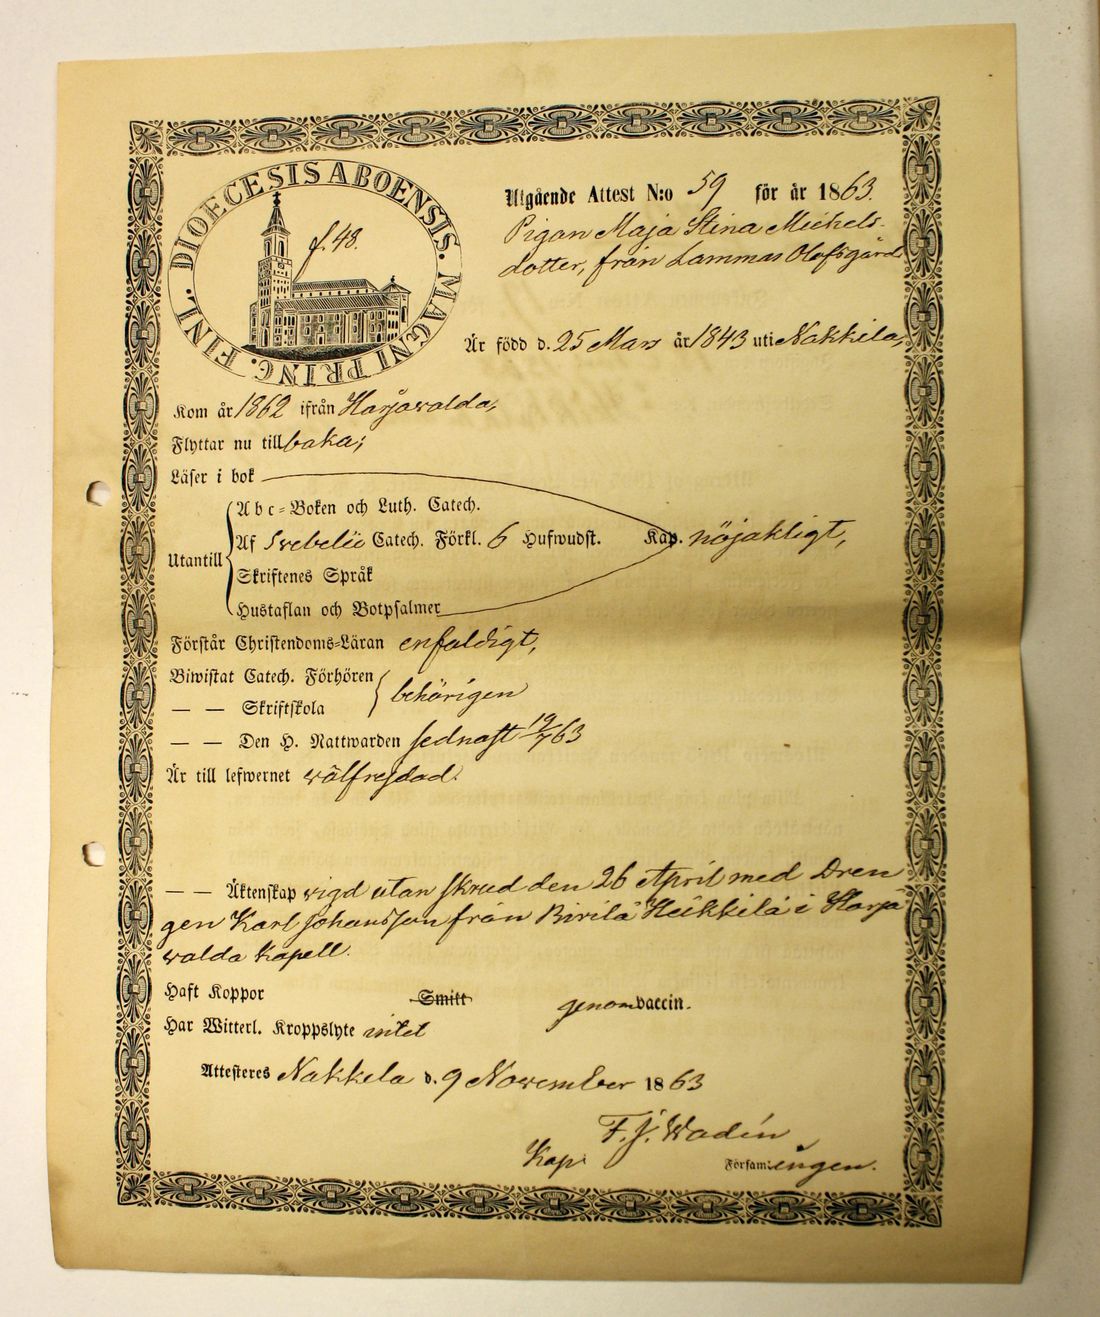 DIOECESIS ABOENSIS. MAGNI PRINC. FINL.
f. 48.
Utgående Attest N:o 59 för år 1863.
Pigan Maja Stina Michels-
dotter, från Lammas Olofsgård
Är född d. 25 Mars år 1843 uti Nakkila,
Kom år 1862 ifrån Harjawalda,
Flyttar nu till baka;
Läser i bok
Utantill
Abc-Boken och Luth. Catech.
Af Svebelii Catech. Förkl. 6 Hufwudst. Kap. nöjaktigt,
Skriftenes Språk
Hustaflan och Botpsalmer
Förstår Christendoms-Läran enfaldigt,
Biwistat Catech. Förhören
— — Skriftskola behörigen
— — Den H. Nattwarden sednast 19/7 63
Är till lefwernet wälfrejdad.
— — Äktenskap vigd utan skrud den 26 April med Dren
gen Karl Johansson från Birilä Heikkilä i Harja
walda Kapell.
Haft Koppor Smitt genom vaccin.
Har Witterl. Kroppslyte intet
Attesteres Nakkela d. 9 November 1863
F. J. Wadén
Kap. Församlingen.